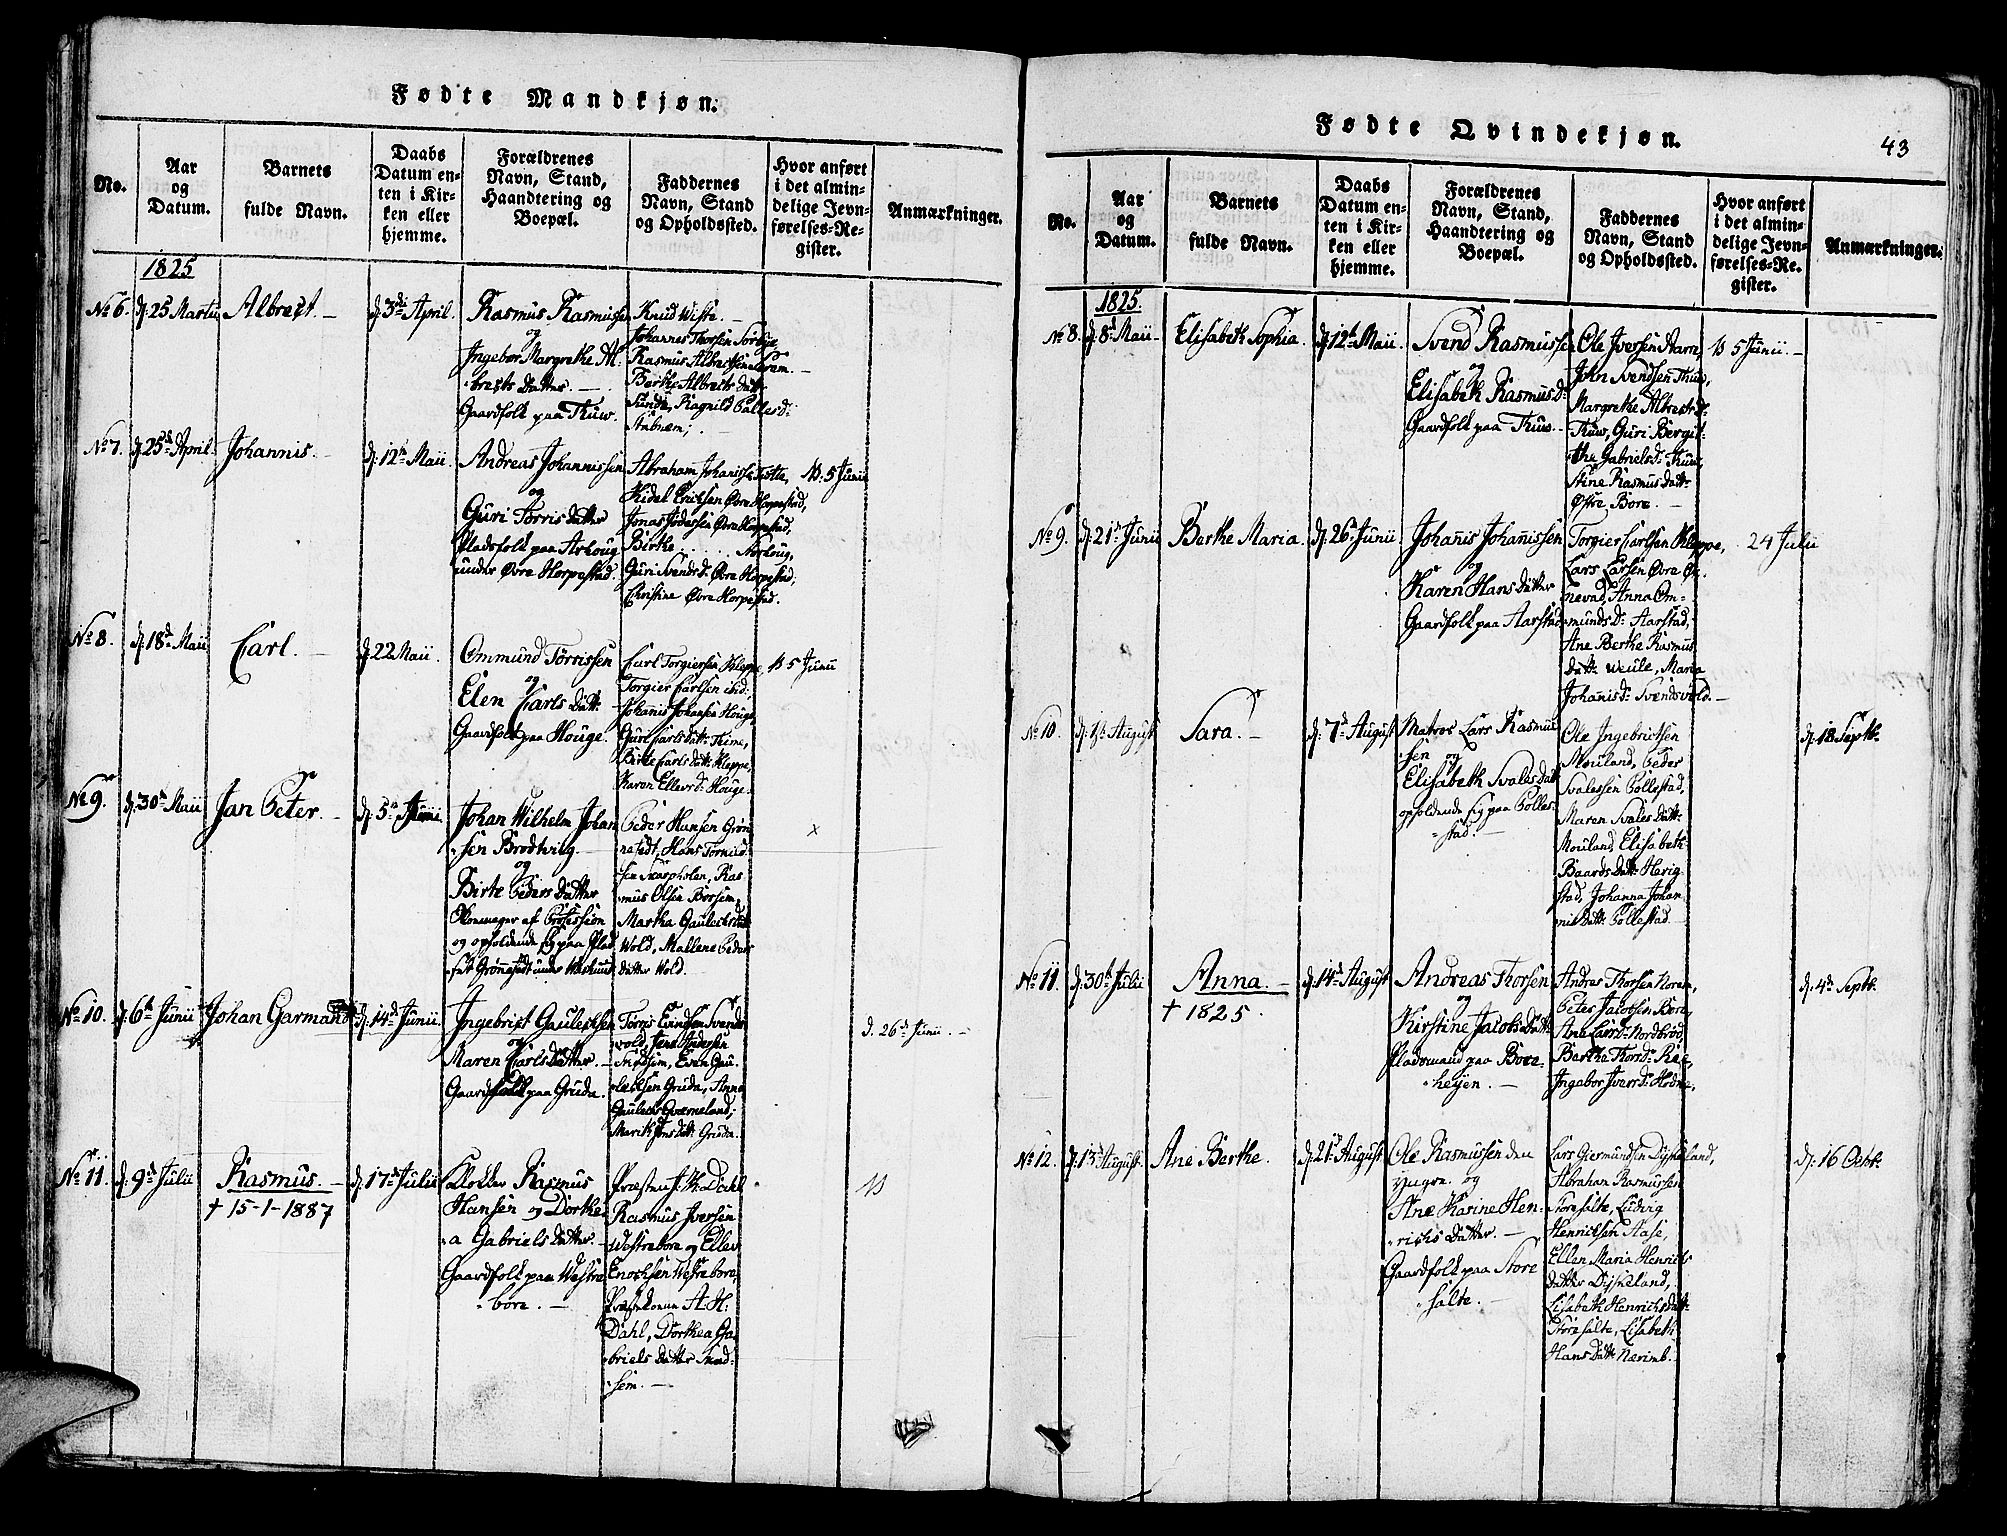 Fødte Mandkjøn.
No.
Aar
og
Datum.
Barnets
fulde Navn.
Daabs
Datum en-
ten i Kir-
ken eller
hjemme.
Forældrenes
Navn, Stand,
Haandtering og
Boepæl.
Faddernes
Navn, Stand
og Opholdssted.
Hvor anført
i det almin-
delige Jevn-
førelses-Re-
gister.
Anmærkninger.
1825
No 6.
d: 25 Martii
Albrect. -
d: 3di April.
Rasmus Rasmussen
og
Ingebor Margrethe Al-
brects Datter. -
Gaardfolk paa Thuw.
Knud Wiste. -
Johannes Thorsen Sorbye,
Rasmus Albrectsen
Berthe Albrects Datt:
Sunde, Ragnild Pallesd:
No 7.
d: 25d April.
Johannis. -
d: 12t Maii
Andreas Johannissen
og
Guri Torris Datter
Pladsfolk paa
under Øvre Horpestad.
Abraham Johanissen
Kidel Ericksen Øvre Horpestad,
Jonas Øvre Horpestad,
Birthe . . . . .
Guri Svends d: Øvre Horpestad;
Christine Øvre Horpestad.
5 Junii
No 8.
d: 18d Maii
Carl. -
d: 22 Maii.
Ommund Torrissen
og
Elen Carls Datt: -
Gaardfolk paa Houge.
Carl Torgiersen Kleppe,
Torgier Carlsen ibid:
Johannis Johansen Houge,
Guri Carls Datt: Thime,
Birthe Carls Datt: Kleppe,
Karen Ellevs d: Houge.
5 Junii
No 9.
d: 30t Maii
Jan Peter. -
d: 5t Junii.
Johan Wilhelm Johan-
sen Brodtving. -
og
Birte Peders Datter
Skomager af Profession
og opholdende sig paa Plad-
set Grønnestedt under
Peder Hansen Grøn-
nestedt, Hans
-sen Skarpholen, Ras-
mus Olsen Borsem,
Martha Gaulecks Datt:
Wold, Mallene Peders
Datter Wold.
x
No 10.
d: 6t Junii
Johan Garmand
d: 14d Junii
Ingebrict Gaulecksen
og
Maren Carls Datter. -
Gaardfolk paa Gruda.
Torris Evindsen Svends-
wold, Jens Andersen
Even Gau-
lecksen Gruda, Anna
Gaulecks Qværneland;
Marith Jons Datt: Gruda.
d. 26d Junii. -
No 11.
d: 9d Julii
Rasmus. -
† 15-1-1887
d: 17d Julii
Klokker Rasmus
Hansen og Dorthe-
a Gabriels Datter. -
Gaardfolk paa Westre
bore. -
Præsten J. K. Dahl
Rasmus Iversen
Westrebore og Ellev
Enochsen Westrebore,
Præstekonen A. H.
Dahl, Dorthea Ga-
briels Datter Skad-
sem. -
Fødte Qvindekjøn.
43
No.
Aar
og
Datum.
Barnets
fulde Navn.
Daabs
Datum en-
ten i Kir-
ken eller
hjemme.
Forældrenes
Navn, Stand,
Haandtering og
Boepæl.
Faddernes
Navn, Stand
og Opholdssted.
Hvor anført
i det almin-
delige Jevn-
førelses-Re-
gister.
Anmærkninger.
1825.
No 8.
d: 8d Maii -
Elisabeth Sophia.
d: 12t Maii.
Svend Rasmussen
og
Elisabeth Rasmus D:
Gaardfolk paa Thuw. -
Ole Iversen
John Svendsen Thuw,
Margrethe Albrects d:
Thuw, Guri Bergit-
the Gabriels d: Thuw,
Stine Rasmus Datt:
Østre Bore. -
5 Junii. -
No 9.
d: 21d Junii
Berthe Maria.
d: 26t Junii.
Johanis Johanissen
og
Karen Hans Datter
Gaardfolk paa Aarstad
Torgier Carlsen Kleppe,
Lars Larsen Øvre Øx-
nevad, Anna Om-
munds D: Aarstad,
Ane Berthe Rasmus
Datt: Weule, Maria
Johanis d: Svendsvold. -
24 Julii
No 10.
d: 1st August
Sara. -
d: 7d August
Matros Lars Rasmus-
sen og
Elisabeth Svales Datt:
opholdende sig paa Polle-
stad. -
Ole Ingebrictsen
Mouland, Peder
Svalessen Pollestad,
Maren Svales Datt:
Mouland, Elisabeth
Baards Datt: Herig-
stad, Johanna Johan-
nis Datt: Pollestad.
d: 18 Septb.
No 11.
d: 30t Julii
Anna. -
† 1825.
d: 14d August
Andreas Thorsen
og
Kirstine Jacobs Datt:
Pladsmand paa Bore-
heyen. -
Andres Thorsen Norem,
Peter Jacobsen Bore,
Ane Larsd: Nordbrød,
Bertha Thorsd: Ree,
Ingabor Iversd: Hodne,
d: 4d Septb.
No 12.
d: 13d August.
Ane Berthe.
d: 21st August
Ole Rasmussen den
yngre. og
Ane Karine Hen-
richs Datter. -
Gaardfolk paa Store
salte. -
Lars Giermundsen Dysseland,
Abraham Rasmussen
Storesalte, Ludvig
Henricksen Aase,
Ellen Maria Henrichs
Datter Dysseland,
Lisabeth Henrichs Datt:
Storesalte, Lisabeth
Hans Datt: Nærimb.
d: 16 Octb.